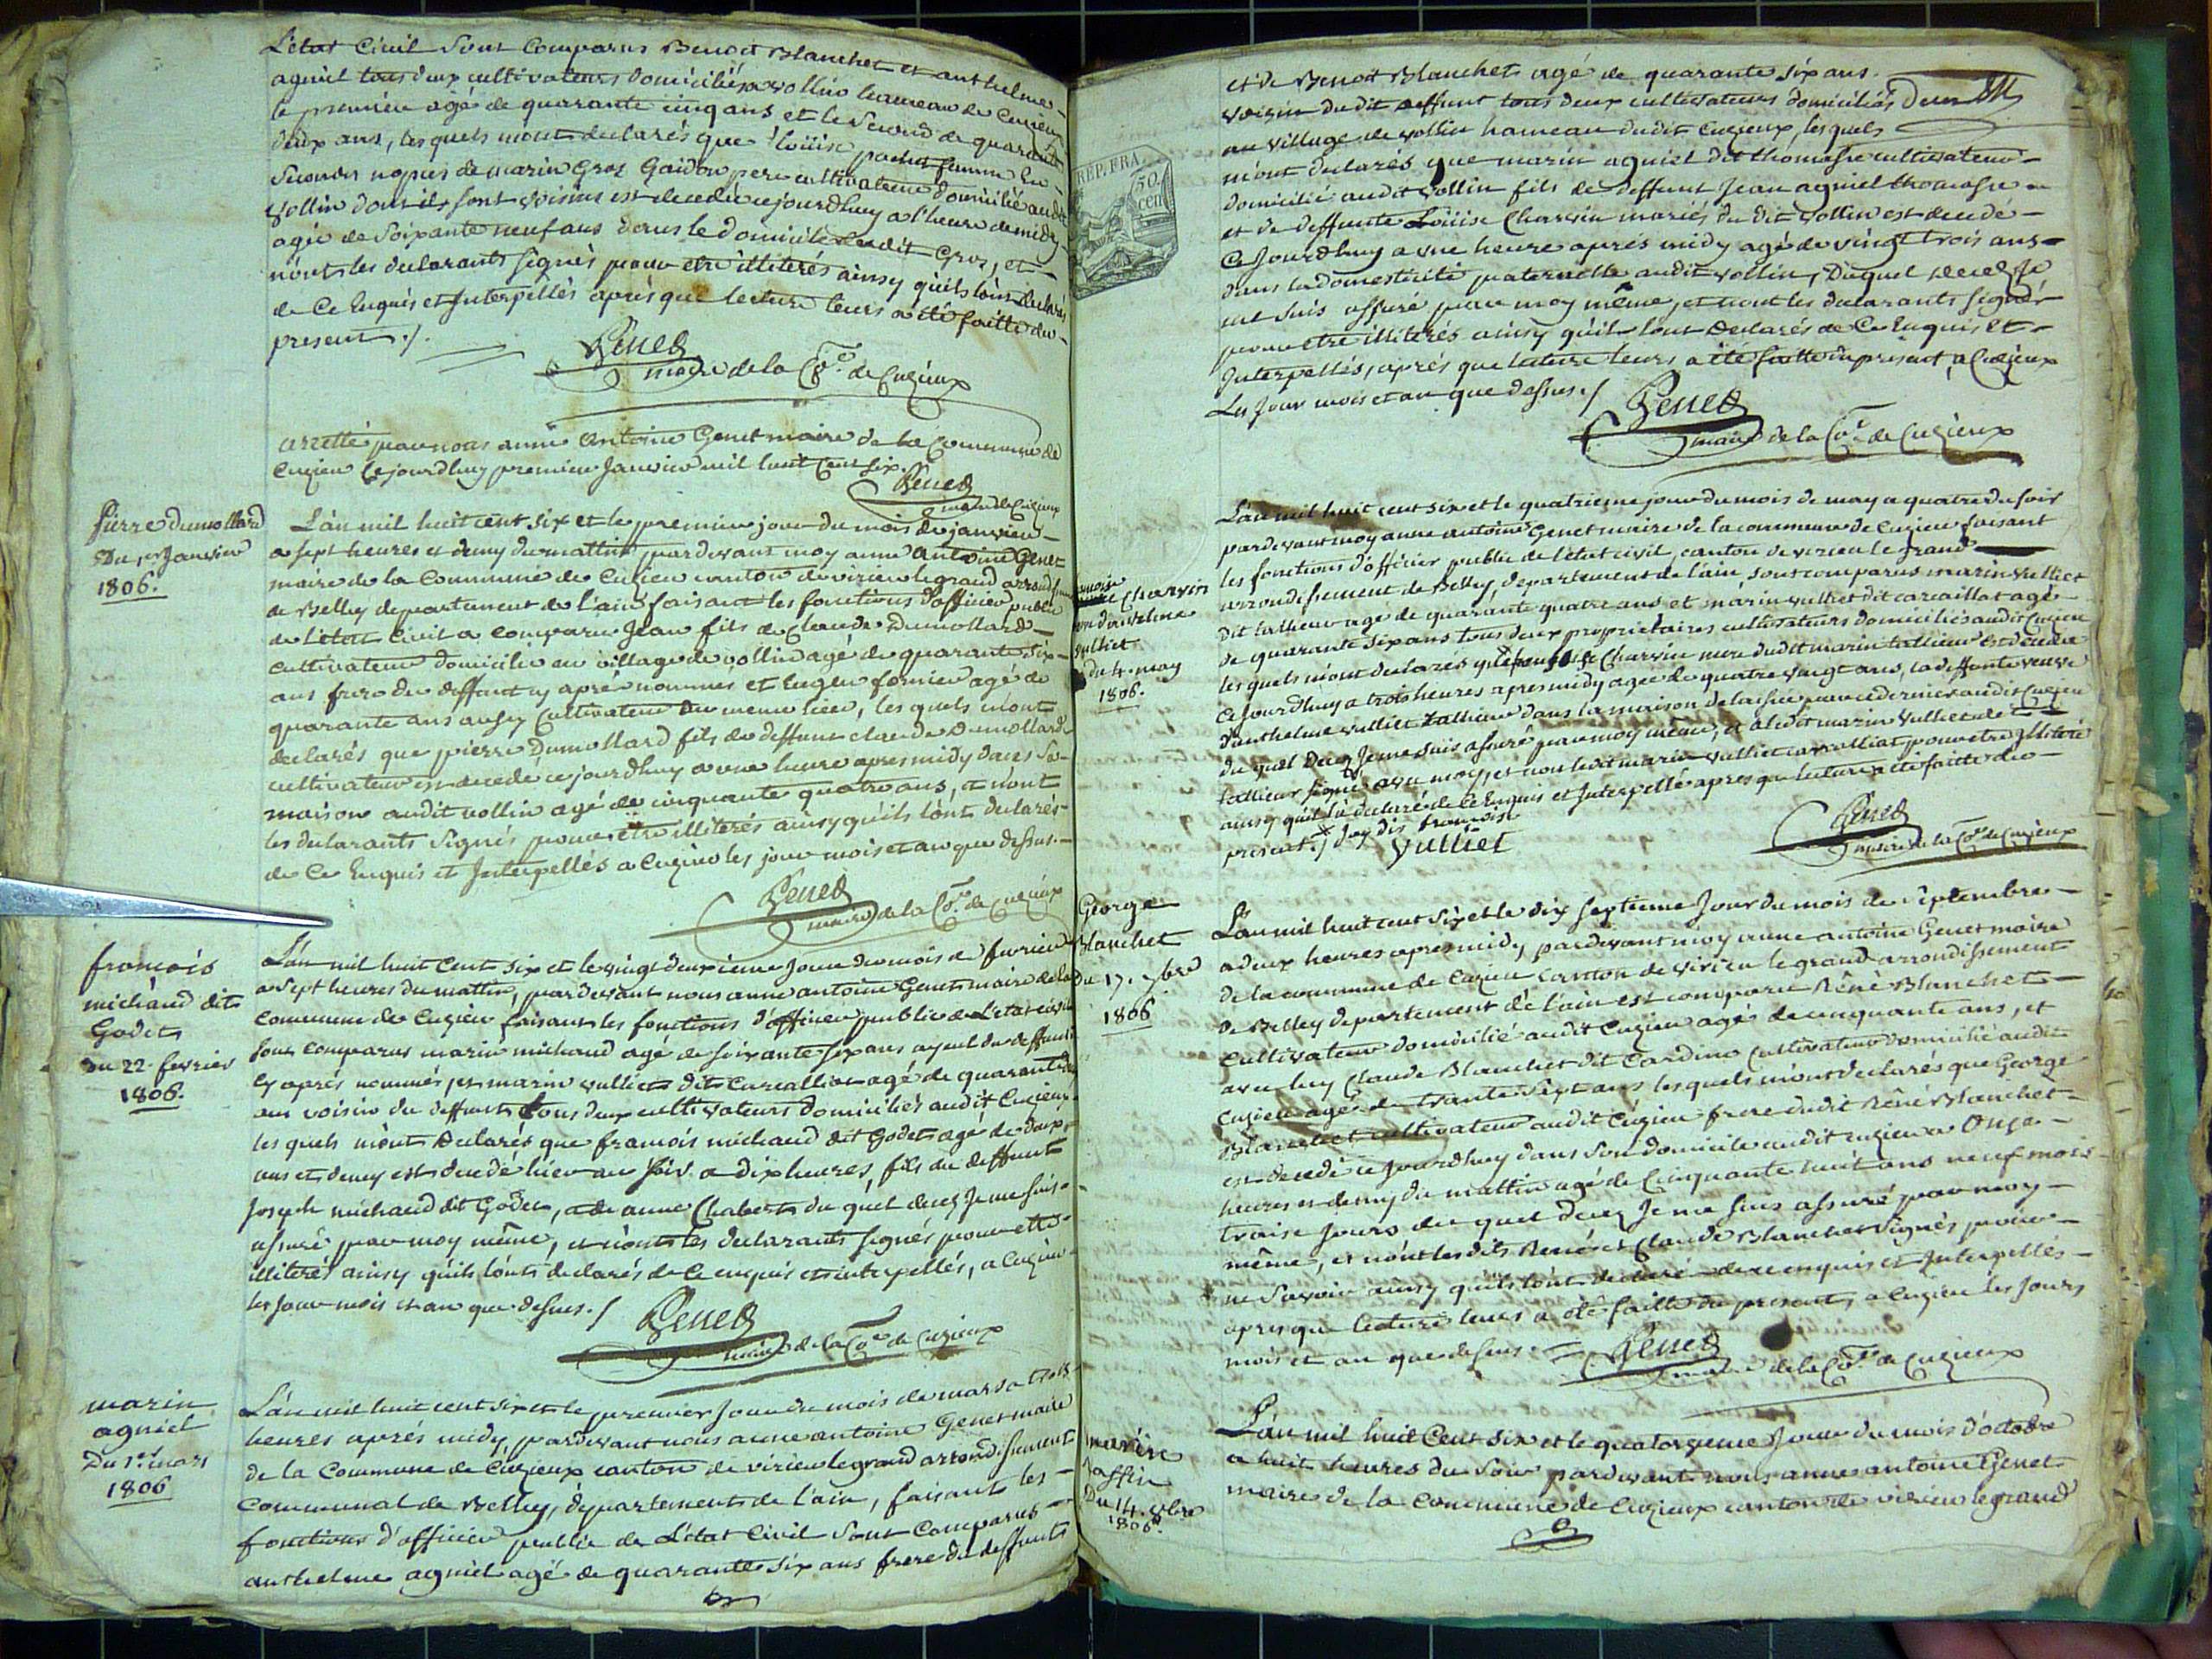 L'état Civil Sont Comparus Benoit Blanchet et anthelme
agniel tous deux cultivateurs domiciliés a vollin hameau de Cuzieux
le premier agé de quarante cinq ans et le Second de quarante
deux ans, les quels m'ont declarés que Loüise pochet femme En
Secondes nopces de marin Gros Gaidon pere cultivateur domicilié audit
vollin dont ils sont voisins est decedée cejourdhuy a l'heure de midy
agée de Soixante neuf ans dans le domicile dudit Gros, et
n'ont les declarants signés pour etre illiterés ainsy quils l'ont declarés
de Ce Enquis et Interpellés aprés que lecture leurs a été faitte du
present ./.
Genet
maire de la Co.e de Cuzieux
arretté par nous anne Antoine Genet maire de la Commune de
Cuzieu Cejourdhuy premier Janvier mil huit Cent six.
Genet
maire de Cuzieux
Pierre Dumollard
Du 1er Janvier
1806.
L'an mil huit cent six et le premier jour du mois de janvier
a sept heures et demy du mattin pardevant moy anne Antoine Genet
maire de la Commune de Cuzieu canton de virieu le grand arrondissement
de Belley departement de l'ain faisant les fonctions d'officier public
de L'état Civil a comparu Jean fils de Claude Dumollard
cultivateur domicilié au village de vollin agé de quarante six
ans frere du deffunt cy aprés nommés et Eugene fornier agé de
quarante ans aussy Cultivateur du meme lieu, les quels m'ont
declarés que pierre Dumollard fils de deffunt claude Dumollard
cultivateur est decedé cejourdhuy a une heure apres midy dans Sa
maison audit vollin agé de cinquante quatre ans, et n'ont
les declarants Signés pour être illiterés ainsy quils l'ont declarés
de Ce Enquis et Interpellés a Cuzieu les jour mois et an que dessus.
Genet
maire de la Co.e de Cuzieux
françois
michaud dit
Godet
Du 22. fevrier
1806.
L'an mil huit Cent six et le vingt deuxieme Jour du mois de fevrier
a Sept heures du mattin, pardevant nous anne antoine Genet maire de la
Commune de Cuzieu faisant les fonctions d'officier public de L'etat civil
Sont Comparus marin michaud agé de soixante six ans ayeul du deffunt
Cy aprés nommés et marin vulliet dit Carcalliat agé de quarante
ans voisin du deffunt tous deux cultivateurs domiciliés audit Cuzieux
les quels m'ont Declarés que françois michaud dit Godet agé de deux
ans et demy est decedé hier au soir a dix heures, fils du deffunt
Joseph michaud dit Godet, et de anne Chabert du quel decez Je me suis
assuré par moy même, et n'ont les declarants signés pour etre
illiterés ainsy quils l'ont declarés de Ce enquis et interpellés, a Cuzieu
les Jour mois et an que dessus. /
Genet
maire de la Co.e de Cuzieux
marin
agniel
Du 1er mars
1806
L'an mil huit cent six et le premier Jour du mois de mars a trois
heures aprés midy, pardevant nous anne antoine Genet maire
de la Commune de Cuzieux canton de virieu le grand arrondissement
Communal de Belley, departement de l'ain, faisant les
fonctions d'officier public de L'état Civil Sont Comparus
anthelme agniel agé de quarante six ans frere du deffunt
REP. FRA.
50.
cen
et de Benoit Blanchet agé de quarante six ans
voisin dudit deffunt tous deux cultivateurs domiciliés
au village de vollin hameau dudit Cuzieux, les quels
m'ont declarés que marin agniel dit thomasse cultivateur
domicilié audit vollin fils de deffunt Jean agniel thomasse
et de deffunte Loüise Charvin mariés du dit vollin est decedé
Ce Jourdhuy a une heure aprés midy agé de vingt trois ans
dans la domesticité paternelle audit vollin, Duquel decez Je
me suis assuré par moy même, et n'ont les declarants signés
pour etre illiterés ainsy quil l'ont Declarés de Ce Enquis et
Interpellés, aprés que lecture leurs a été faitte du present, a Cuzieux
Les Jour mois et an que dessus. /
Genet
maire de la Co.e de Cuzieux
Charvin
danthelme
vulliet
du 4. may
1806.
L'an mil huit cent six et le quatrieme jour du mois de may a quatre du soir
pardevant moy anne antoine Genet maire de la commune de Cuzieu faisant
les fonctions d'officier public de l'état civil, canton de virieu le grand
arrondissement de Belley, departement de l'ain, sont comparus marin vulliet
dit tallieur agé de quarante quatre ans et marin vulliet dit carcaillat agé
de quarante six ans tous deux proprietaires cultivateurs domiciliés audit Cuzieu
les quels m'ont declarés que Charvin mere dudit marin tallieur est decedée
Ce Jourdhuy a trois heures apres midy agée de quatre vingt ans, la deffunte veuve
d'anthelme vulliet tallieur dans la maison delaissée par ce dernier audit Cuzieu
du quel Decez Je me suis assuré par moy même, et a ledit marin vulliet dit
tallieur signé avec moy, et non ledit marin vulliet carcalliat pour etre illiteré
ainsy quil l'a declaré de Ce Enquis et Interpellé apres que lecture a eté faitte du
present. / Jay dis françoise
vulliet
Genet
maire de la Co.e de Cuzieux
George
Blanchet
Du 17. 7bre
1806
L'an mil huit cent six et le dix septieme Jour du mois de septembre
a deux heures apres midy, pardevant moy anne antoine Genet maire
de la commune de Cuzieu Canton de virieu le grand arrondissement
de Belley departement de l'ain est comparu Réné Blanchet
Cultivateur domicilié audit Cuzieu agé de cinquante ans, et
avec luy Claude Blanchet dit Cardine Cultivateur domicilié audit
Cuzieu agé de trante sept ans, les quels m'ont declarés que George
Blanchet cultivateur audit Cuzieu frere dudit Réné Blanchet
est decedé ce Jourdhuy dans Son domicile audit cuzieu a Onze
heures et demy du mattin agé de Cinquante huit ans neuf mois
traise Jours du quel Decez Je me suis assuré par moy
même, et n'ont les dits Renés et Claude Blanchet signés pour
ne savoir ainsy quils l'ont declaré de ce enquis et Interpellés
apres que lecture leurs a été faitte du present, a Cuzieu les Jours
mois et an que dessus.
Genet
maire de la Co.e de Cuzieux
marie
affin
Du 14. 8bre
1806.
L'an mil huit Cent six et le quatorzieme Jour du mois d'octobre
a huit heures du Soir pardevant nous anne antoine Genet
maire de la Commune de Cuzieux canton de virieu le grand